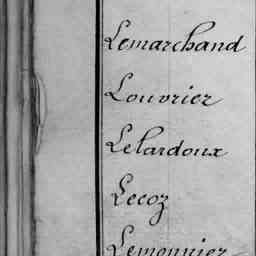 Lemarchand
Louvrier
Lelardoux
Lecoz
Lemonnier